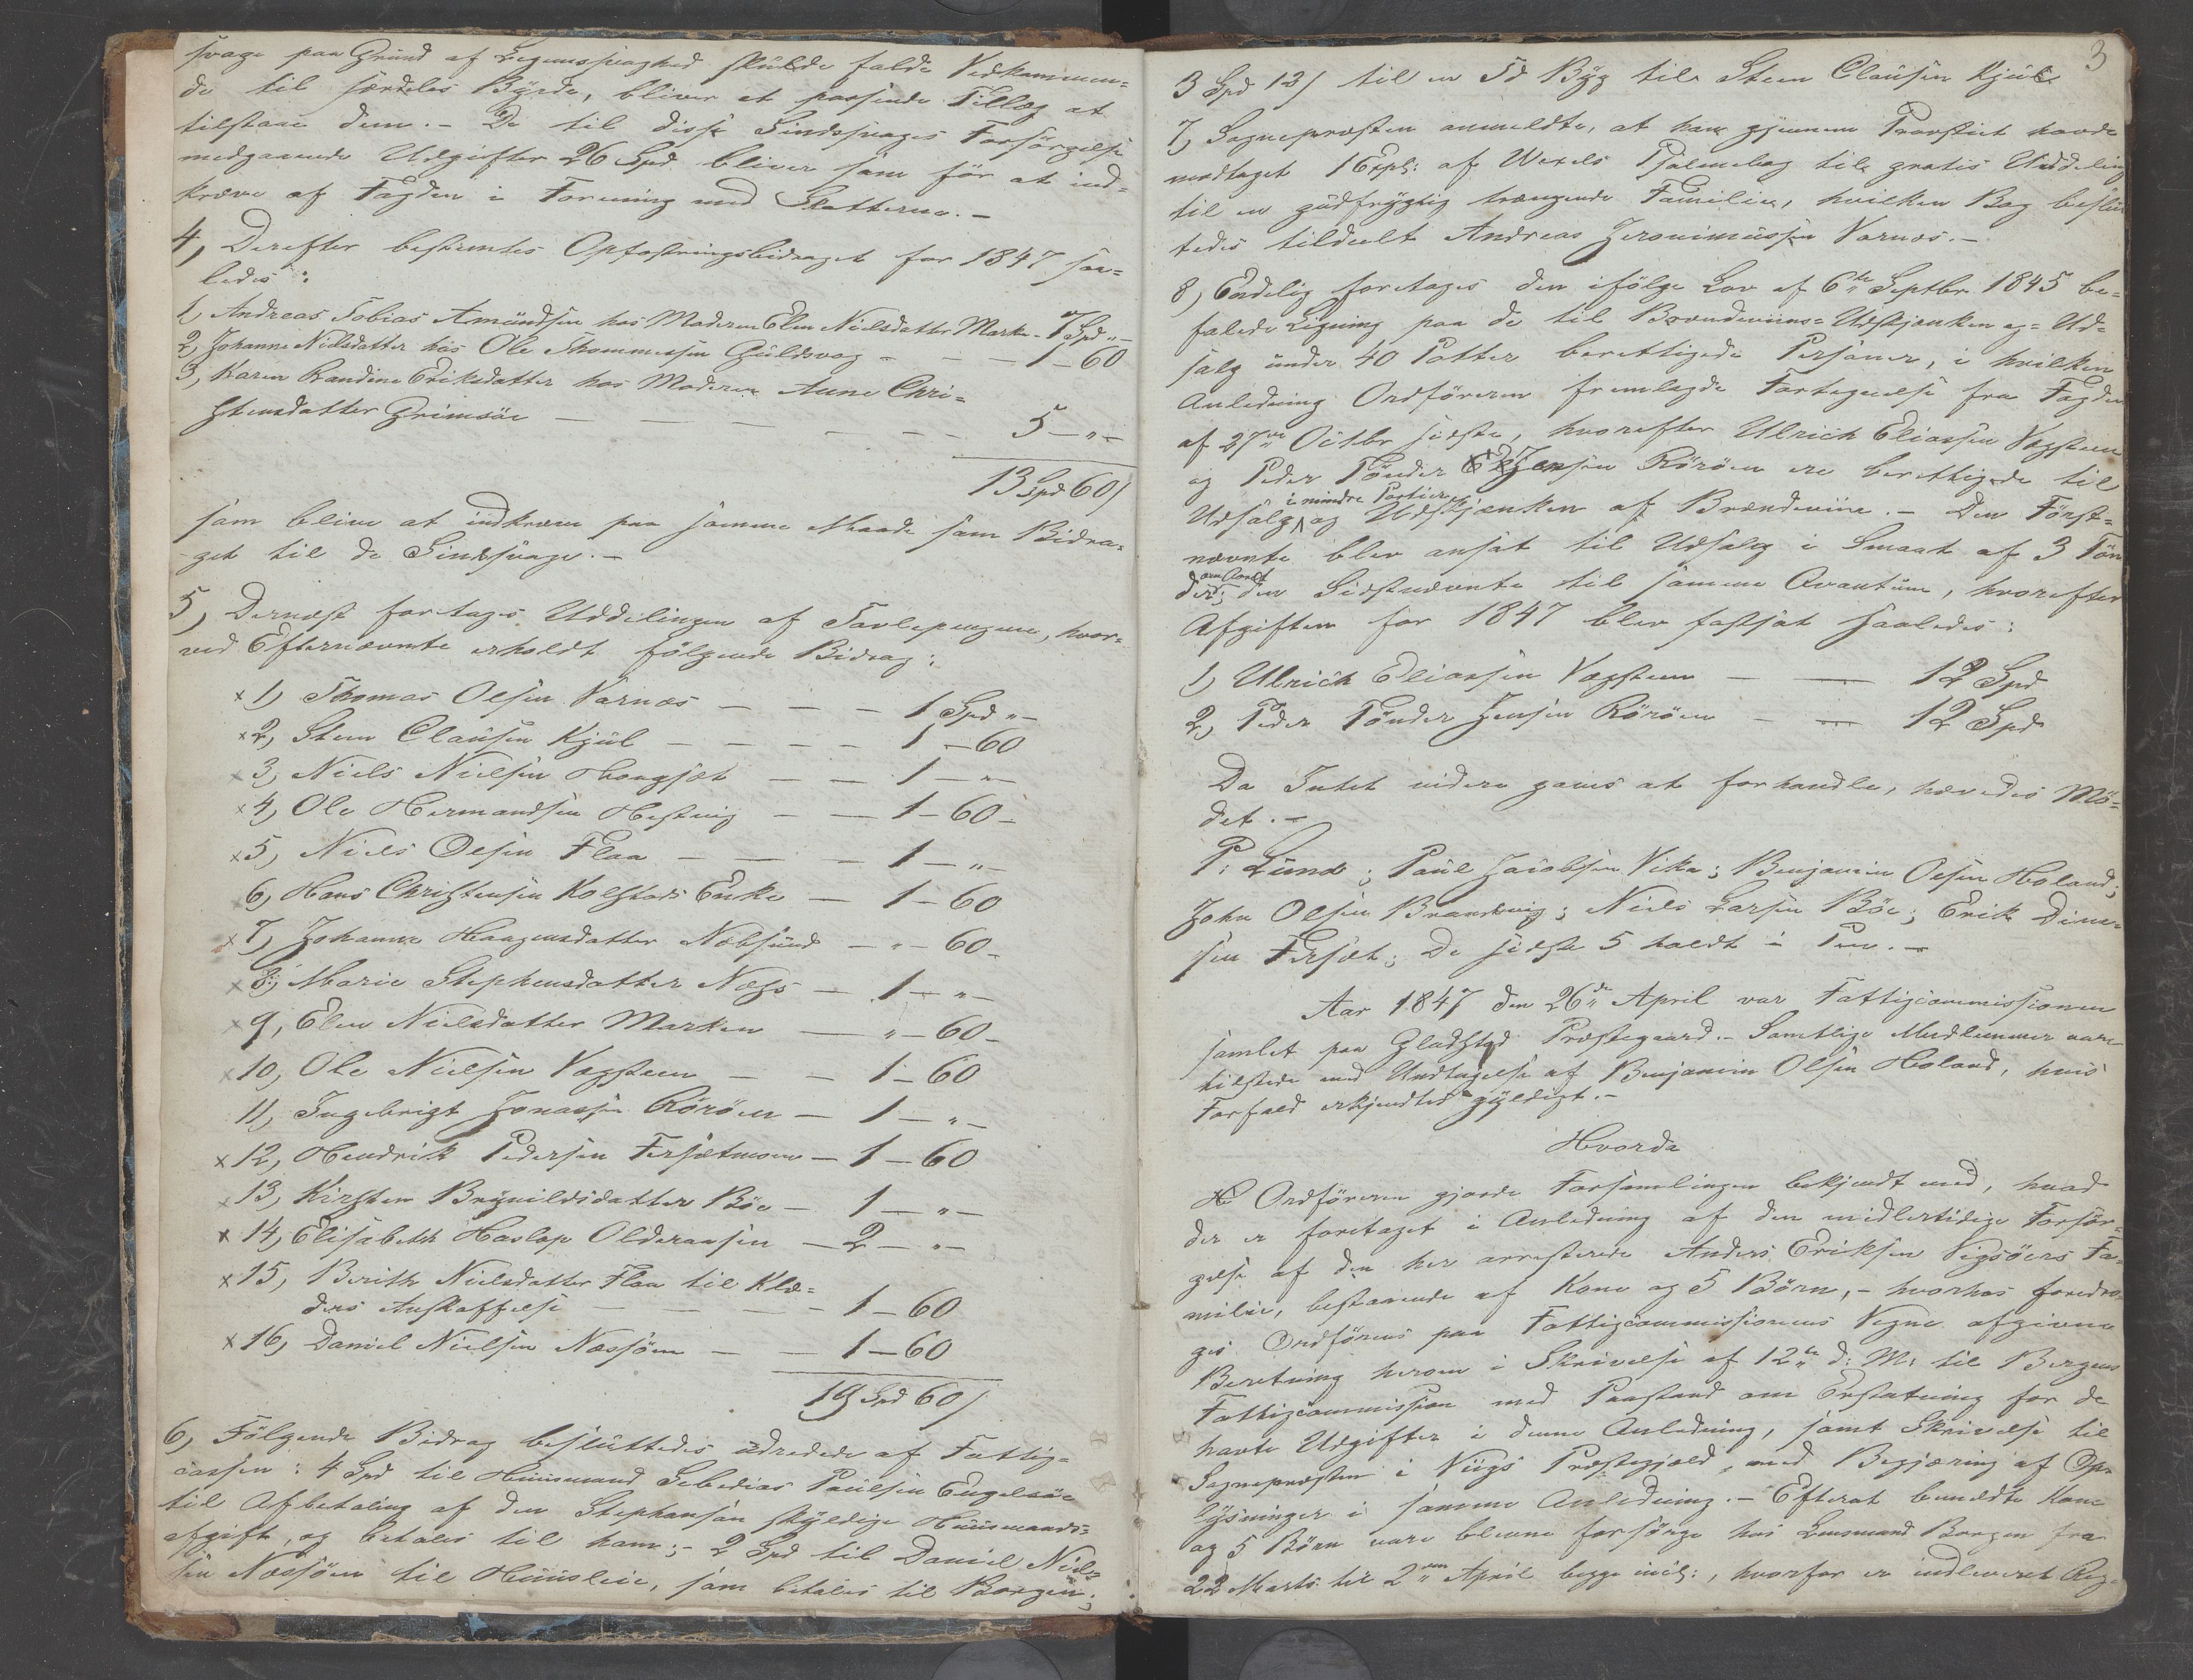 svage paa Grund af Legemssvaghed skulde falde Vedkommen-
de til særdeles Byrde, bliver et passende Tillæg at
tilstaae dem. - De til disse Sindssvages Forsørgelse
medgaaende Udgifter 26 Spd bliver som før at ind-
kræve af Fogden i Forening med Skatterne. -
4, Derefter bestemtes Opfostringsbidraget for 1847 saa-
ledes:
1, Andreas Tobias Amundsen hos Moderen Elen Nielsdatter Marken - 7 Spd „ -
2, Johanna Nielsdatter hos Ole Thommessen Guldvog - - - 1 - 60
3, Karen Randine Eriksdatter hos Moderen Anne Chri-
stensdatter Grimsöe - - - - - - 5 - „ -
13 Spd 60 ß
som blive at indkræve paa samme Maade som Bidra-
get til de Sindssvage. -
5, Dernæst foretoges Uddelingen af Tavlepengene, hvor-
ved Efternævnte erholdt følgende Bidrag:
x 1, Thomas Olsen Varnæs - - - 1 Spd „ -
x 2, Steen Clausen Kjul - - - - 1 - 60
x 3, Niels Nielsen Haugsæt - - 1 - „ -
x 4, Ole Hermandsen Hestvig - - 1 - 60 -
x 5, Niels Olsen Flaa - - - 1 - „ -
6, Hans Christensen Kolstads Enke - 1 - 60
x 7, Johanna Haagensdatter Næbsund - „ - 60 -
x 8, Marie Stephensdatter Næss - 1 - „ -
x 9, Elen Nielsdatter Marken - „ - 60 -
x 10, Ole Nielsen Vægsteen - - 1 - 60
11, Ingebrigt Jonassen Rörøen - 1 - „ -
x 12, Hendrik Pedersen Forsætmoen - 1 - 60
x 13, Kirsten Brynildsdatter Böe - 1 - „ -
x 14, Elisabeth Haslop Olderansen - 2 - „ -
x 15, Berith Nielsdatter Flaa til Klæ-
ders Anskaffelse - - - - 1 - 60
x 16, Daniel Nielsen Næssøen - - 1 - 60
19 Spd 60 ß
6, Følgende Bidrag besluttedes udredede af Fattig-
cassen: 4 Spd til Huusmand Sebedias Paulsen Engelsöe
til Afbetaling af den Stephanson skyldige Huusmands-
afgift, og betales til ham; - 2 Spd til Daniel Niel-
sen Næssøen til Huusleie, som betales til Borgen;
3
3 Spd 12 ß til en Td Byg til Steen Clausen Kjul
7, Sognepræsten anmeldte, at han gjennem Provstiet havde
modtaget 1 Expl: af Wexels Psalmebog til gratis Uddeling
til en gudfrygtig trængende Familie, hvilken Bog beslut-
tedes tildeelt Andreas Jeronimussen Varnæs. -
8, Endelig foretoges den ifølge Lov af 6te Septbr 1845 be-
falede Ligning paa de til Brændeviins-Udskjænken og-Ud-
salg under 40 Potter berettigede Personer, i hvilken
Anledning Ordføreren fremlagde Fortegnelse fra Fogden
af 27de Octbr sidste, hvorefter Ulrich Eliassen Vægsteen
og Peder Tönder Jensen Rörøen ere berettigede til
Udsalg i mindre Partier og Udskjænken af Brændeviin. - Den Først-
nævnte blev ansat til Udsalg i Smaat af 3 Tön-
der om Aaret; den Sidstnævnte til samme Qvantum, hvorefter
Afgiften for 1847 blev fastsat saaledes:
1, Ulrich Eliassen Vægsteen - - 12 Spd
2, Peder Tönder Jensen Rörøen - - 12 Spd
Da Intet videre gaves at forhandle, hævedes Mö-
det. -
P: Lund; Paul Jacobsen Vika; Benjamin Olsen Holand;
John Olsen Brandsvig; Niels Larsen Böe; Erik Din-
sen Forsæt; De sidste 5 holdt i Pen. -
Aar 1847 den 26de April var Fattigcommissionen
samlet paa Gladstad Præstegaard. - Samtlige Medlemmer vare
tilstede med Undtagelse af Benjamin Olsen Holand, hvis
Forfald erkjendtes gyldigt. -
Hvorda
Ordføreren gjorde Forsamlingen bekjendt med, hvad
der er foretaget i Anledning af den midlertidige Forsør-
gelse af den her arresterede Anders Eriksen Vigsöers Fa-
milie, bestaaende af Kone og 5 Børn, - hvorhos foredro-
ges Ordførens paa Fattigcommissionens Vegne afgivne
Beretning herom i Skrivelse af 12te d: M: til Bergens
Fattigcommission med Paastand om Erstatning for de
havte Udgifter i denne Anledning, samt Skrivelse til
Sognepræsten i Viigs Præstegjæld, med Begjæring af Op-
lysninger i samme Anledning. - Efterat bemeldte Kone
og 5 Børn vare blevne forsørgede hos Lensmand Borgen fra
22 Marts til 2den April begge incl:, hvorfor er indleveret Reg-